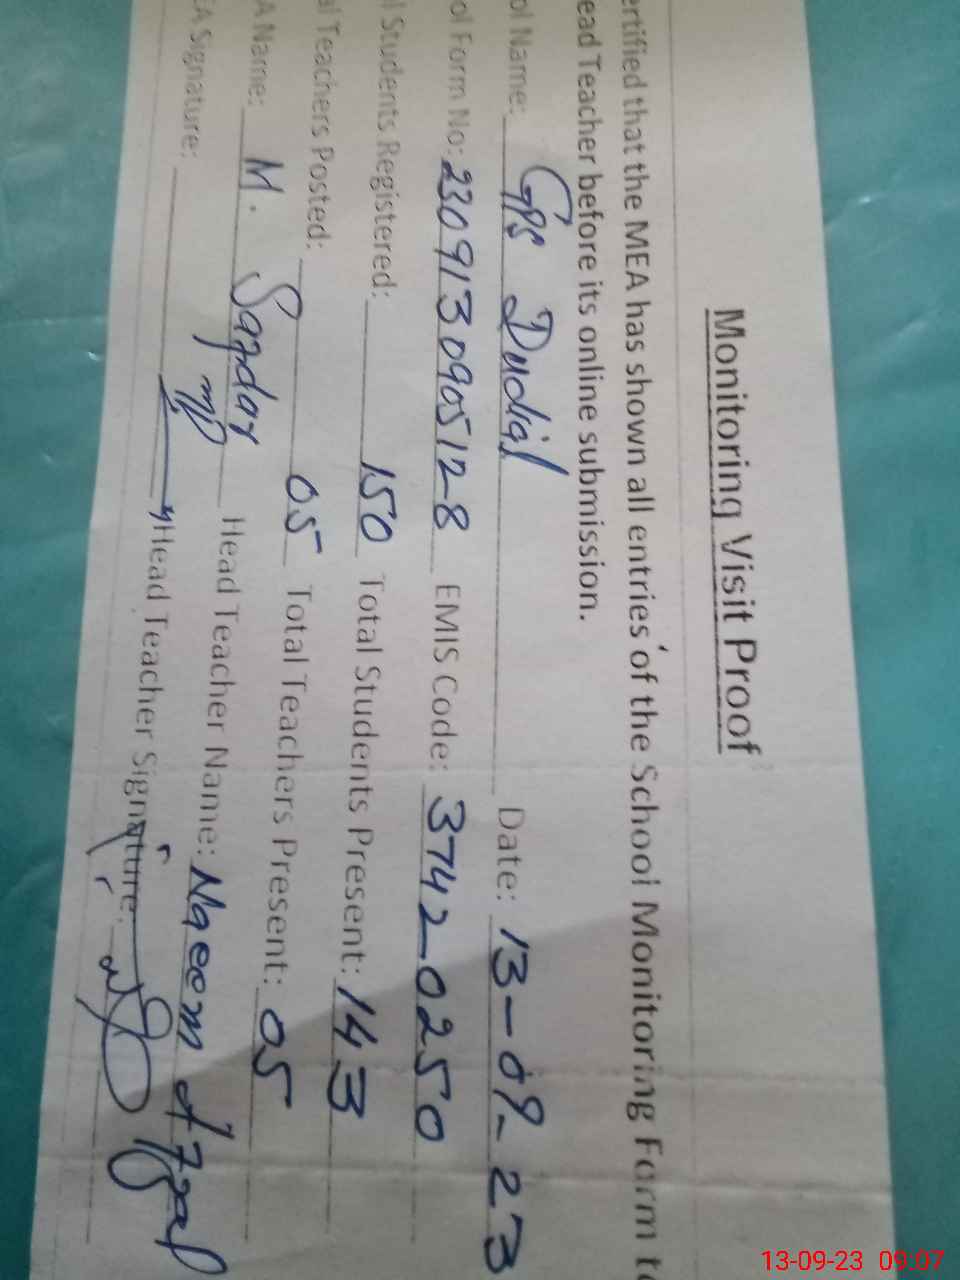 Monitoring Visit Proof
ertified that the MEA has shown all entries of the School Monitoring Form to
ead Teacher before its online submission.
ol Name: GPS Dudial Date: 13-09-23
ol Form No: 2309130905128 EMIS Code: 37420250
l Students Registered: 150 Total Students Present: 143
al Teachers Posted: 05 Total Teachers Present: 05
A Name: M. Safdar Head Teacher Name: Naeem Afzal
EA Signature: Head Teacher Signature:
13-09-23 09:07